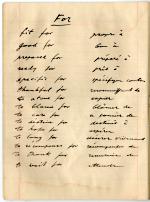 For
fit for propre à
good for bon à
prepare for préparé à
ready for prêt à
specific for spécifique contre
thankful for reconnaissant de
to atone for expier
to blame for blâmer de
to care for se soucier de
to destine for destiner à
to hope for espérer
to long for désirer vivement
to recompense for récompenser de
to thank for remercier de
to wait for attendre